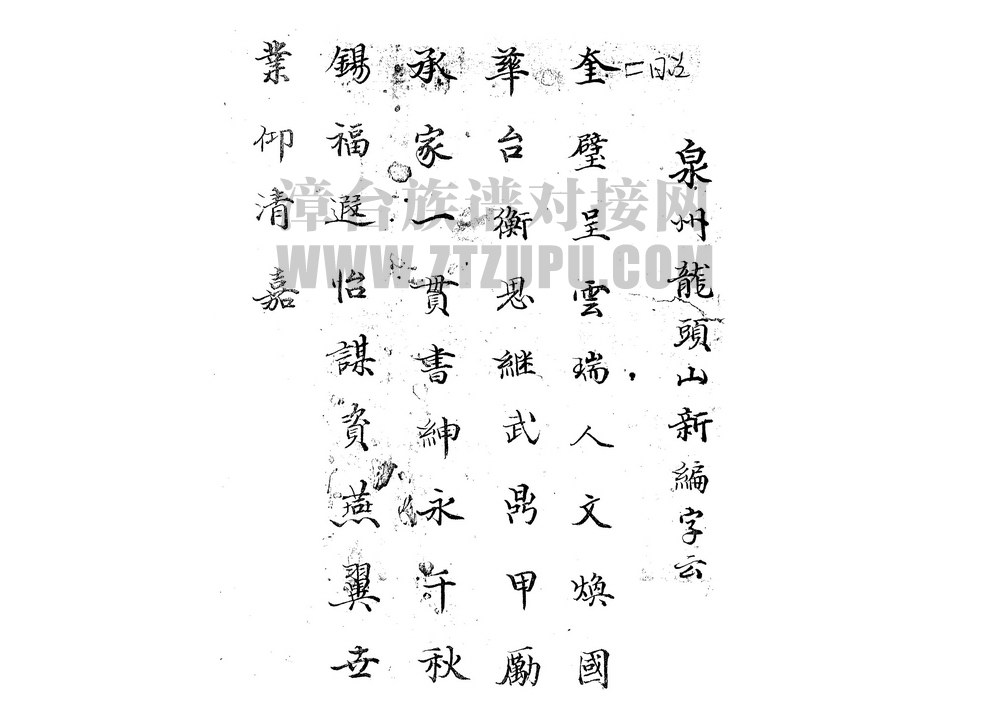 泉州龍頭山新編字云
奎璧呈雲瑞人文煥國
華台衡思継武鼎甲勵
承家一貫書紳永千秋
錫福遐怡謀資燕翼世
業仰清嘉
漳台族谱对接网
WWW.ZTZUPU.COM